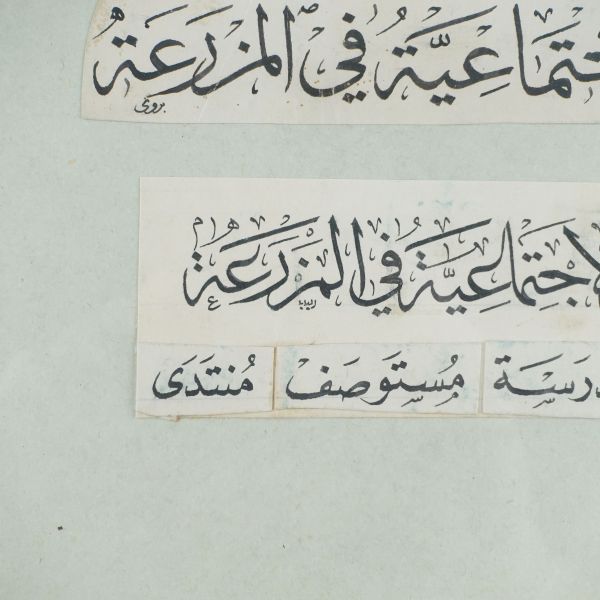 اجتماعيّة في المزرعة
الاجتماعيّة في المزرعة
مدرسة مستوصف منتدى